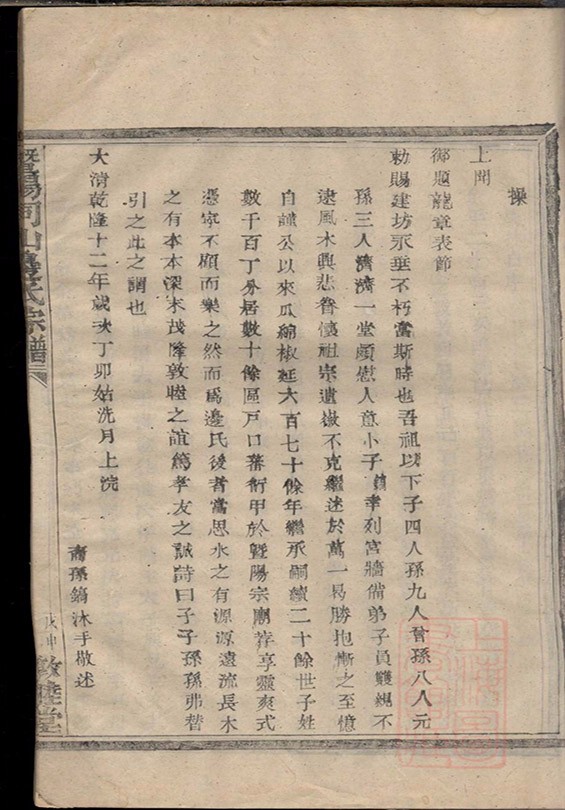 操
上聞
御題龍章表節
勅賜建坊永垂不朽當斯時也吾祖以下子四人孫九人曾孫八人元
孫三人濟濟一堂頗慰人意小子鎬幸列宮牆備弟子員雙親不
逮風木興悲眷懷祖宗遺徽不克繼述於萬一曷勝抱慚之至憶
自謹及以來瓜綿椒延六百七十餘年繼承嗣續二十餘世子姓
數千百丁分居數十餘區戸口蕃衍甲於暨陽宗廟荐享靈爽式
憑寧不顧而樂之然而爲邊氏後者當思水之有源源遠流長木
之有本本深末茂隆敦睦之誼篤孝友之誠詩曰子子孫孫弗替
引之此之謂也
大清乾隆十二年歲次丁卯姑洗月上浣
裔孫鎬沐手敬述
暨陽同山邊氏宗譜
敦睦堂